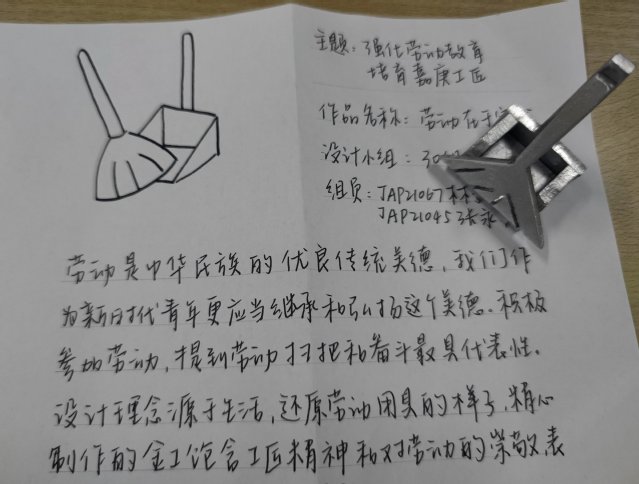 主题：强化劳动教育
培育嘉庚工匠
作品名称：劳动在于
设计小组：30
组员：JAP21067林
JAP21045张永
劳动是中华民族的优良传统美德，我们作
为新时代青年更应当继承和弘扬这个美德。积极
参加劳动，提到劳动扫把和畚斗最具代表性。
设计理念源于生活，还原劳动用具的样子，精心
制作的金工饱含工匠精神和对劳动的崇敬，表